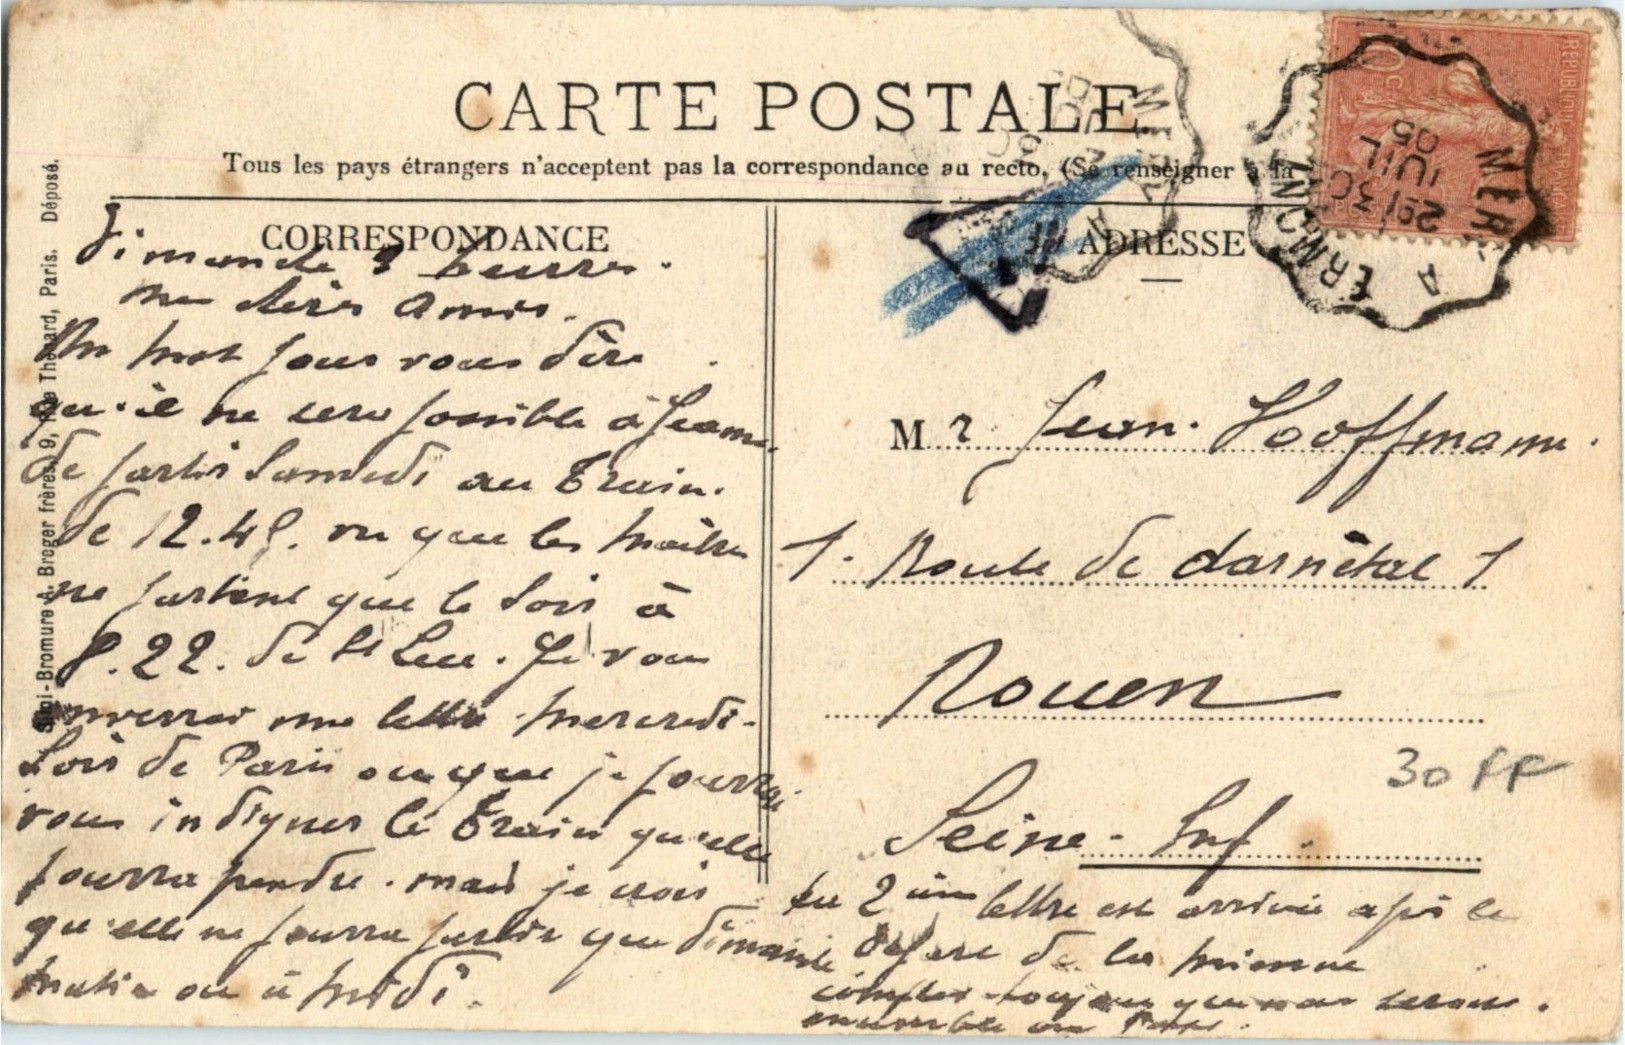 CARTE POSTALE
Tous les pays étrangers n'acceptent pas la correspondance au recto. (Se renseigner à la
CORRESPONDANCE
Dimanche 9 heures.
mes chers Amis.
Un mot pour vous dire
qu'il ne sera possible à Jeanne
de partir Samedi au Train.
de 12.45. vu que les maîtres
ne partent que le soir à
8.22. de St Leu. Je vous
enverrai une lettre mercredi
Soir de Paris ou que je pourrai
vous indiquer le Train qu'elle
pourra prendre. mais je crois
qu'elle ne pourra partir que dimanche
matin ou à midi.
ADRESSE
Mr Jean. Hoffmann.
1. Route de darnétal 1
Rouen
Seine-Inf
30 FF
ta 2ième lettre est arrivée après le
départ de la mienne
compter toujours que nous serons
ensemble
A. Breger frères, 9, Rue Thénard, Paris. Déposé.
ERMONT
A
MERY
2E
30
JUIL
05
10c